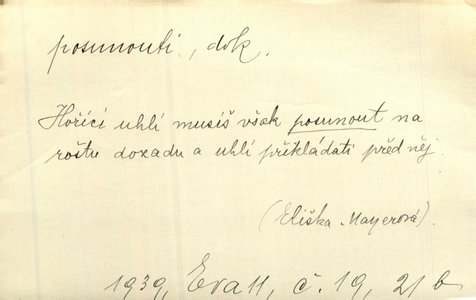 posunouti, dok.
Hořící uhlí musíš však posunout na
roštu dozadu a uhlí přikládati před něj.
(Eliška Mayerová).
1939, Eva 11, č. 19, 21 b